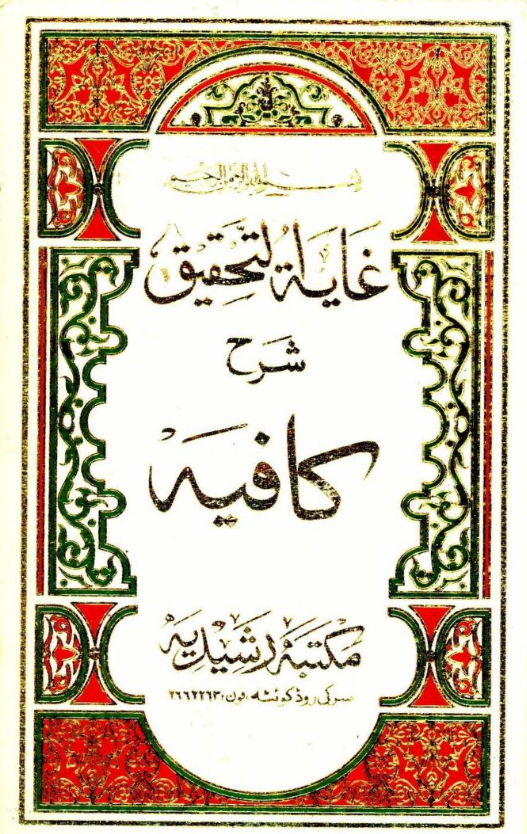 بسم الله الرحمن الرحيم
غَايَةُ التَّحْقِيْق
شَرح
كافيه
مكتبه رشيديه
سركى روڈ كوئٹه، فون: ٢٦٦٢٢٦٣